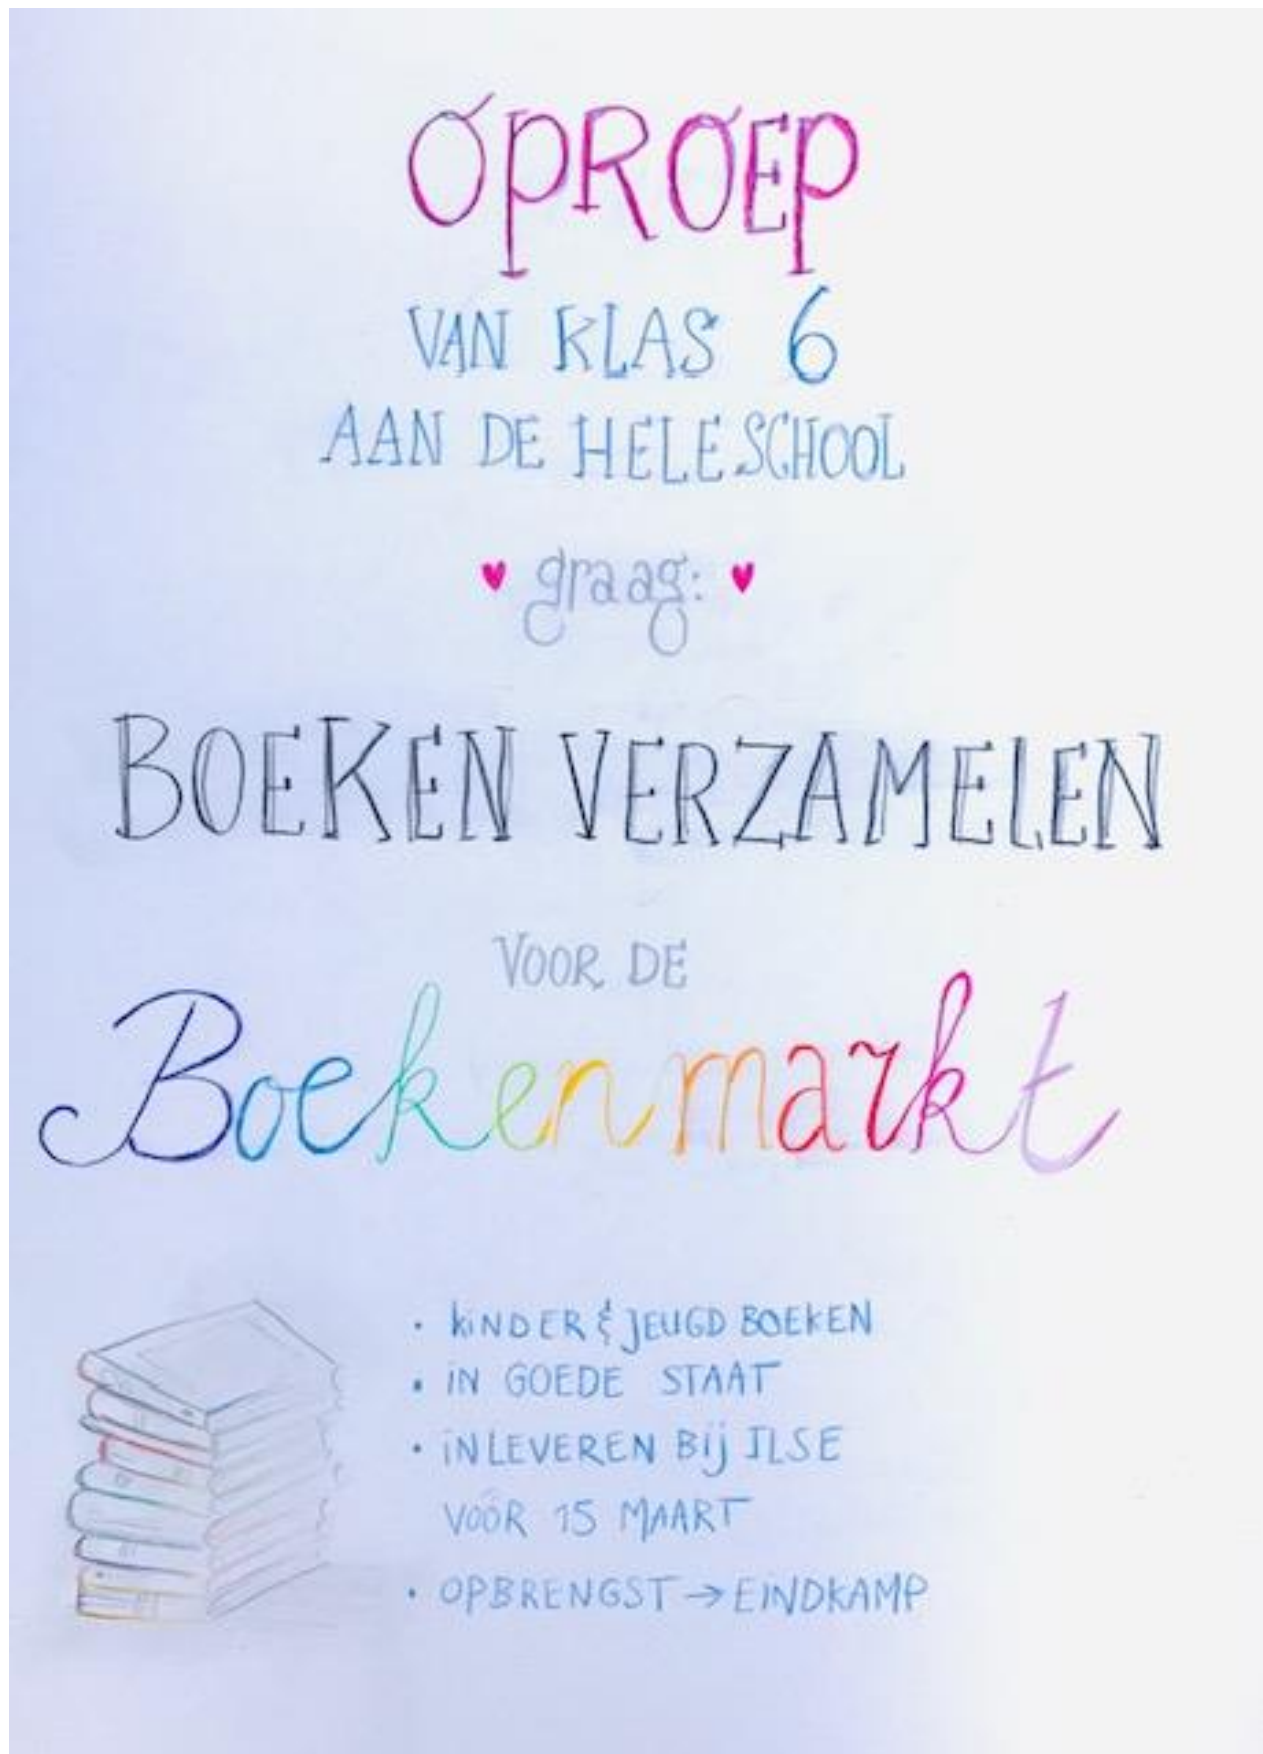 OPROEP
VAN KLAS 6
AAN DE HELE SCHOOL
graag:
BOEKEN VERZAMELEN
VOOR DE
Boekenmarkt
• KINDER & JEUGD BOEKEN
• IN GOEDE STAAT
• INLEVEREN BIJ ILSE
VÓÓR 15 MAART
• OPBRENGST → EINDKAMP